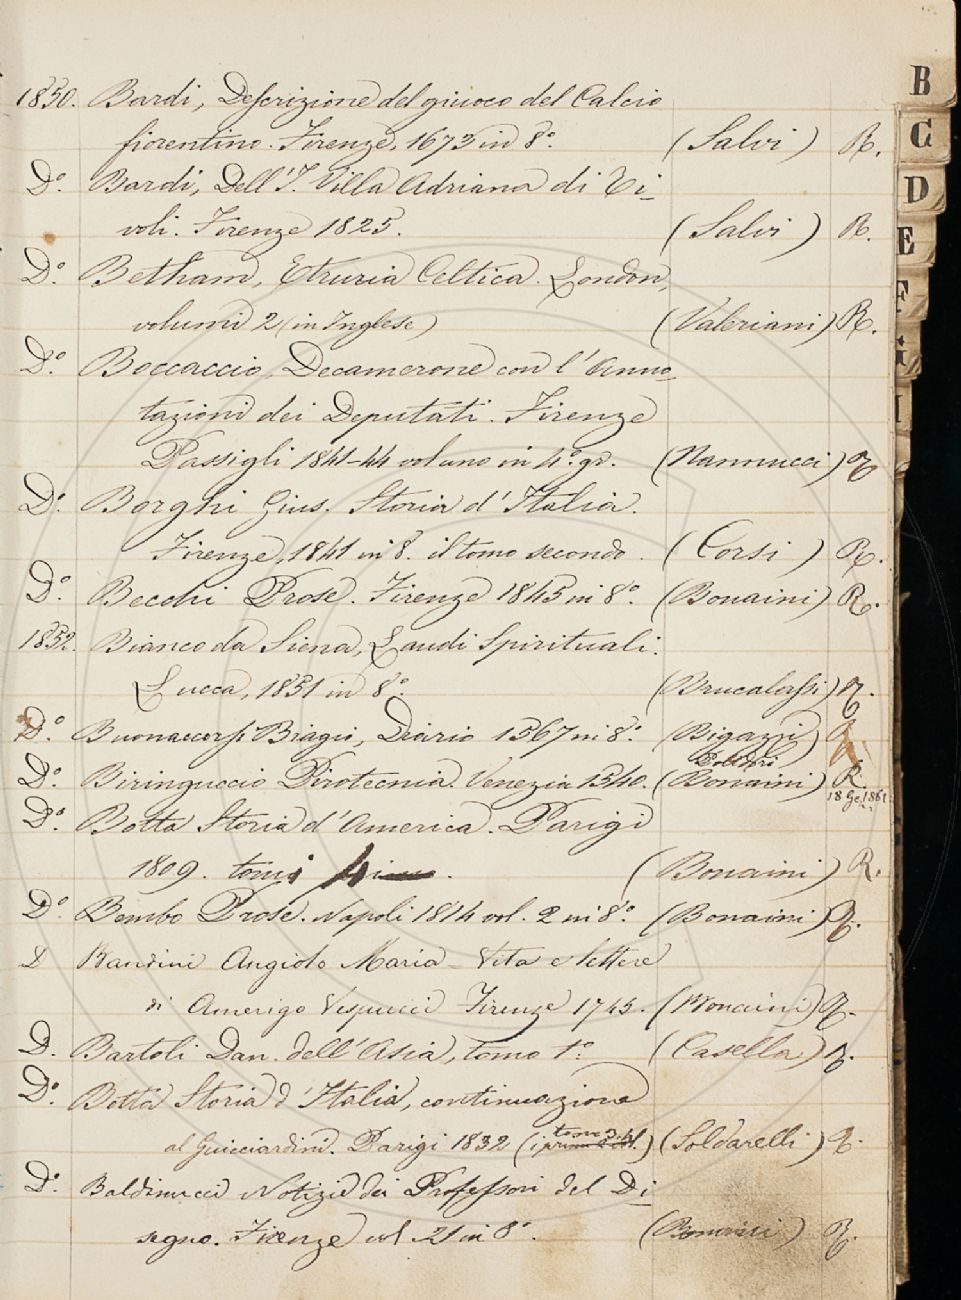 B
C
D
E
F
G
I
1850. Bardi, Descrizione del giuoco del Calcio
fiorentino. Firenze, 1673 in 8.° (Salvi) R.
D.° Bardi, Dell'I. Villa Adriana di Ti-
voli. Firenze 1825. (Salvi) R.
D.° Betham, Etruria Celtica. London,
volumi 2 (in Inglese) (Valeriani) R.
D.° Boccaccio, Decamerone con l'Anno-
tazioni dei Deputati. Firenze
Passigli 1841-44 vol uno in 4.° gr. (Nannucci) R
D.° Borghi Gius. Storia d'Italia.
Firenze, 1841 in 8.° il tomo secondo. (Corsi) R.
D.° Becchi Prose. Firenze 1845 in 8.° (Bonaini) R.
1852. Bianco da Siena, Laudi Spirituali.
Lucca, 1851 in 8.° (Brucalassi) R.
D.° Buonaccorsi Biagio, Diario 1567 in 8.° (Bigazzi) R
D.° Biringuccio Pirotecnia. Venezia 1540. (Bonaini) R
18 Ge. 1861
D.° Botta Storia d'America. Parigi
1809. tomi 4. (Bonaini) R.
D.° Bembo Prose. Napoli 1814 vol. 2 in 8.° (Bonaini) R.
D Bandini Angiolo Maria - Vita e lettere
di Amerigo Vespucci Firenze 1745. (Bonaini) R.
D. Bartoli Dan. dell'Asia, tomo 1.° (Casella) R.
D.° Botta Storia d'Italia, continuazione
al Guicciardini. Parigi 1832 (Soldarelli) R.
D.° Baldinucci Notizie dei Professori del Di-
segno. Firenze vol 21 in 8.° (Bonaini) R.